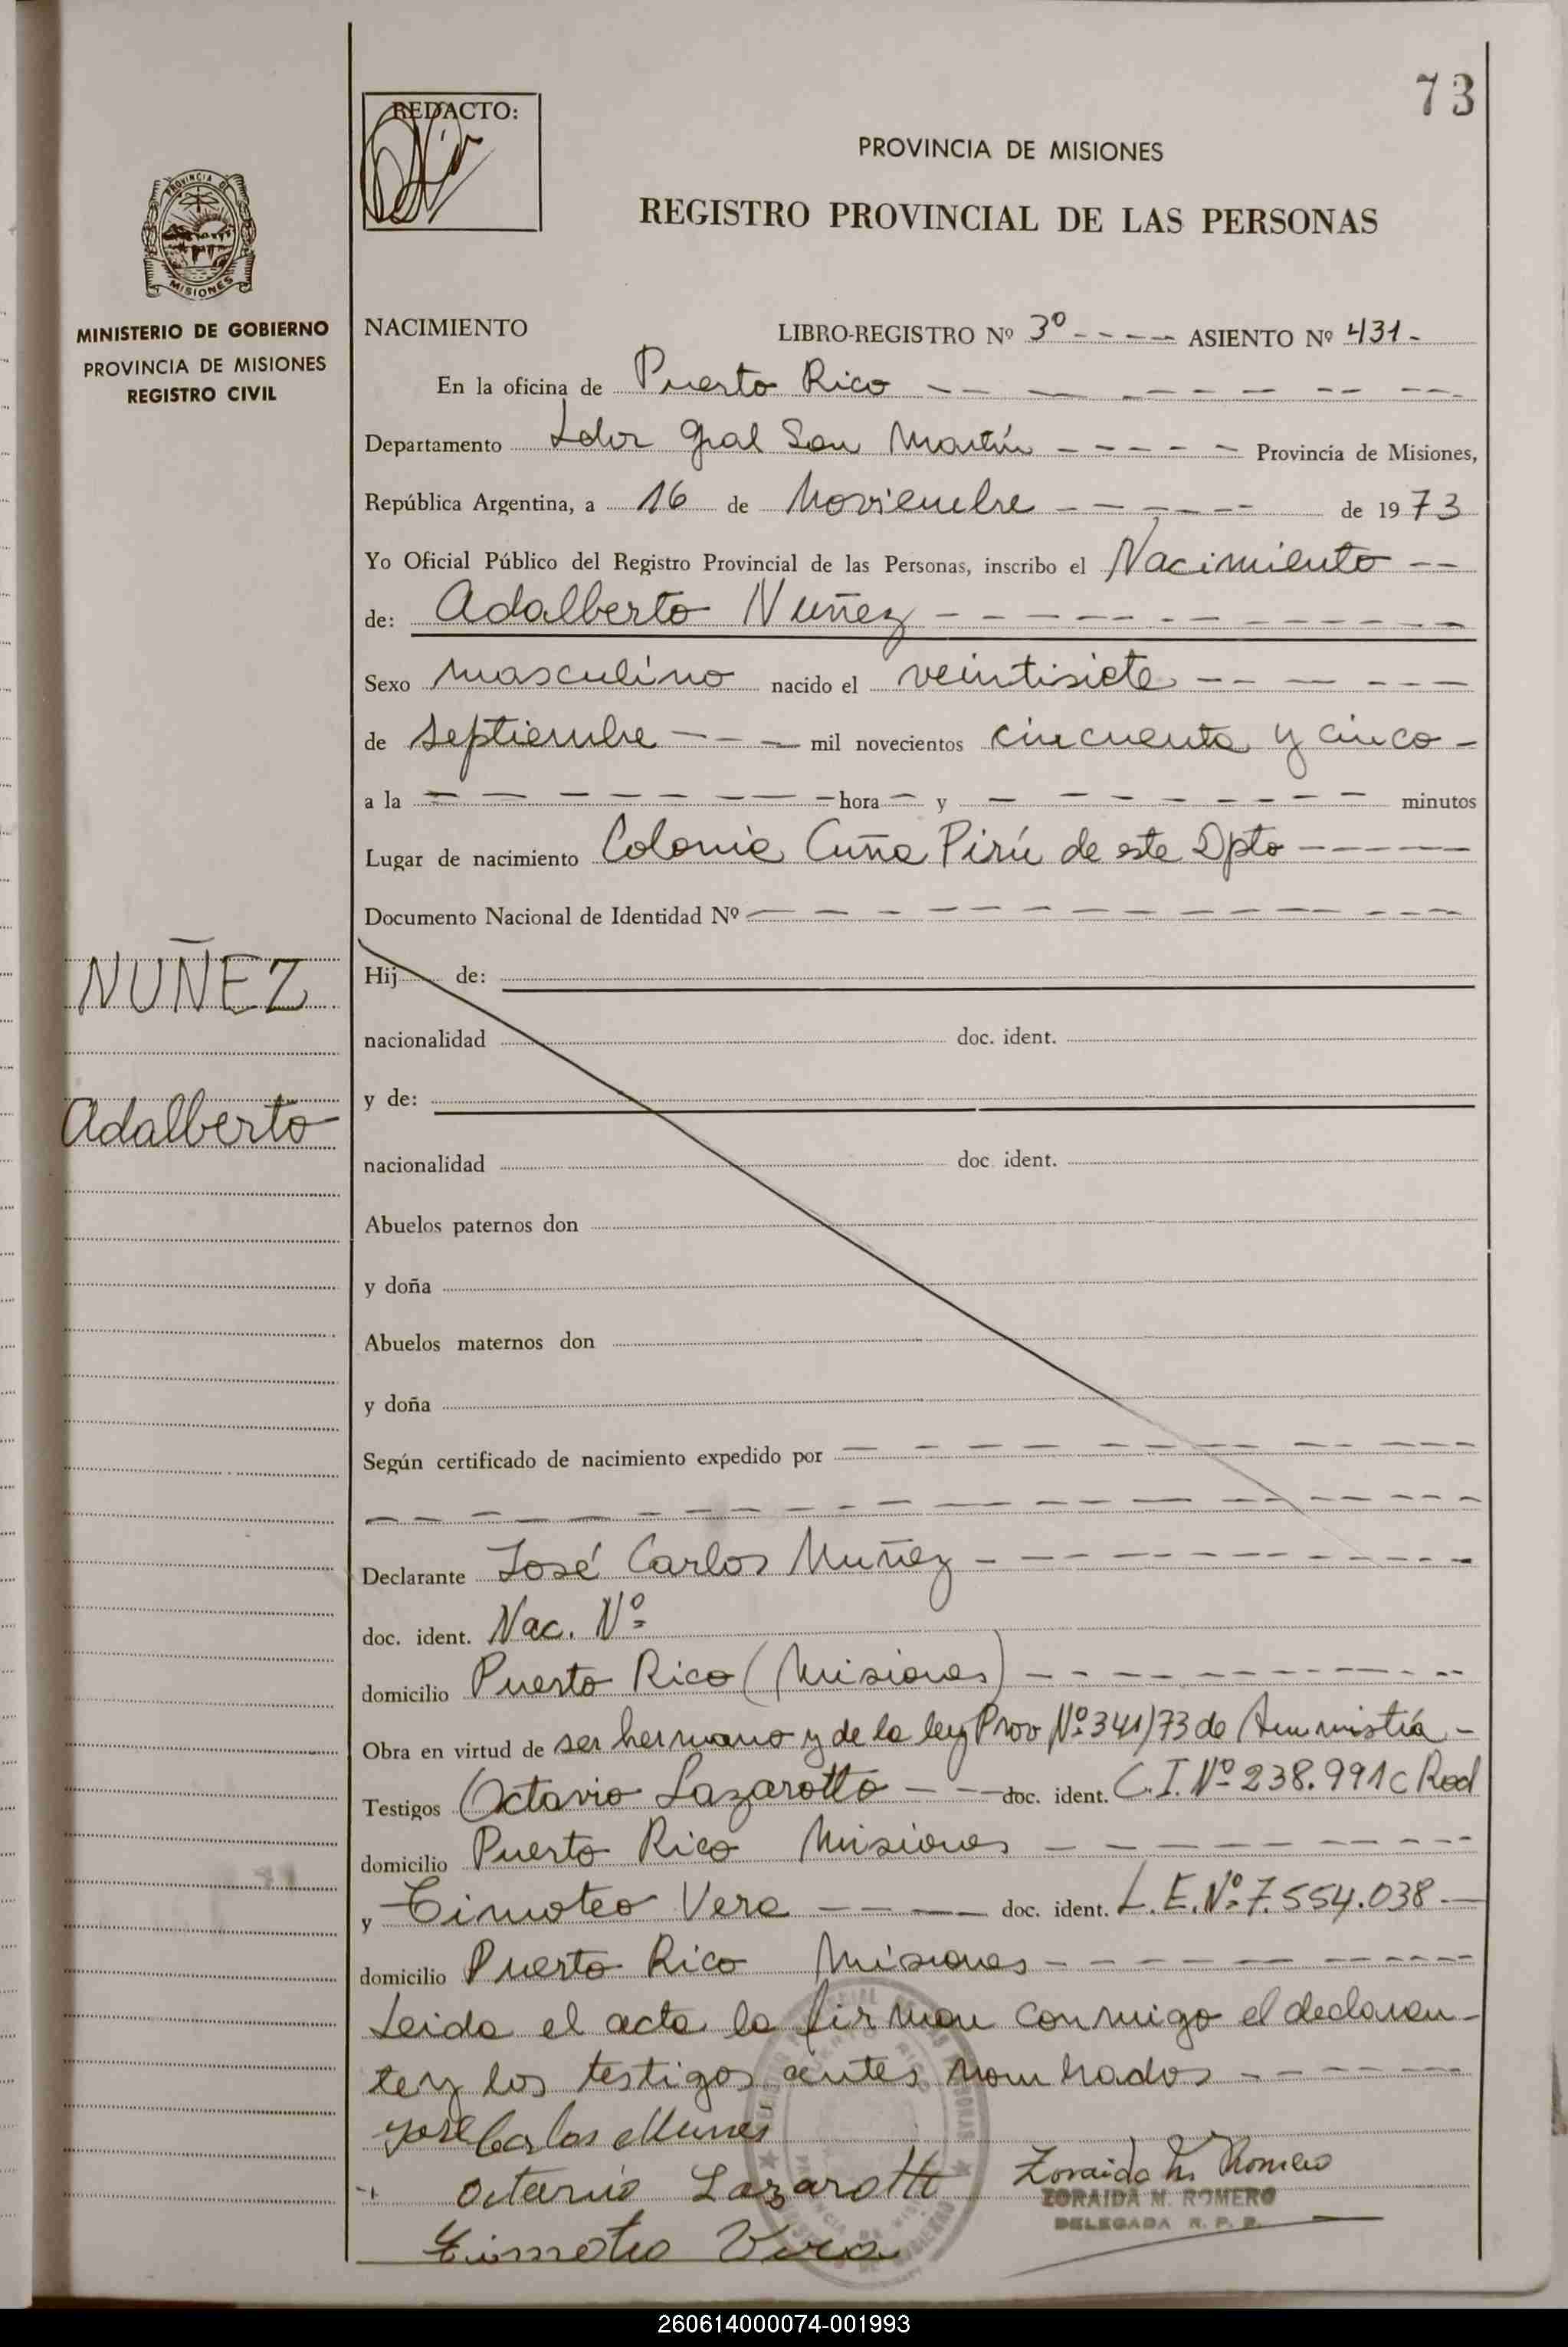 73
REDACTO:
PROVINCIA DE MISIONES
REGISTRO PROVINCIAL DE LAS PERSONAS
PROVINCIA DE
MISIONES
MINISTERIO DE GOBIERNO
PROVINCIA DE MISIONES
REGISTRO CIVIL
NACIMIENTO LIBRO-REGISTRO Nº 3º ASIENTO Nº 431
En la oficina de Puerto Rico
Departamento Ldor Gral San Martín Provincia de Misiones,
República Argentina, a 16 de Noviembre de 1973
Yo Oficial Público del Registro Provincial de las Personas, inscribo el Nacimiento
de: Adalberto Nuñez
Sexo masculino nacido el veintisiete
de septiembre mil novecientos cincuenta y cinco
a la hora y minutos
Lugar de nacimiento Colonia Cuña Pirú de este Dpto
Documento Nacional de Identidad Nº
NUÑEZ
Adalberto
Hij de:
nacionalidad doc. ident.
y de:
nacionalidad doc. ident.
Abuelos paternos don
y doña
Abuelos maternos don
y doña
Según certificado de nacimiento expedido por
Declarante José Carlos Nuñez
doc. ident. Nac. Nº
domicilio Puerto Rico (Misiones)
Obra en virtud de ser hermano y de la ley Prov Nº 341/73 de Amnistía
Testigos Octavio Lazarotto doc. ident. C.I. Nº 238.991 c Rod
domicilio Puerto Rico Misiones
y Timoteo Vera doc. ident. L.E. Nº 7.554.038
domicilio Puerto Rico Misiones
Leida el acta la firman conmigo el declaran-
te y los testigos antes nombrados
Jose Carlos Nunes
Octavio Lazarotto
Zoraida M. Romero
ZORAIDA M. ROMERO
DELEGADA R. P. P.
Timoteo Vera
260614000074-001993